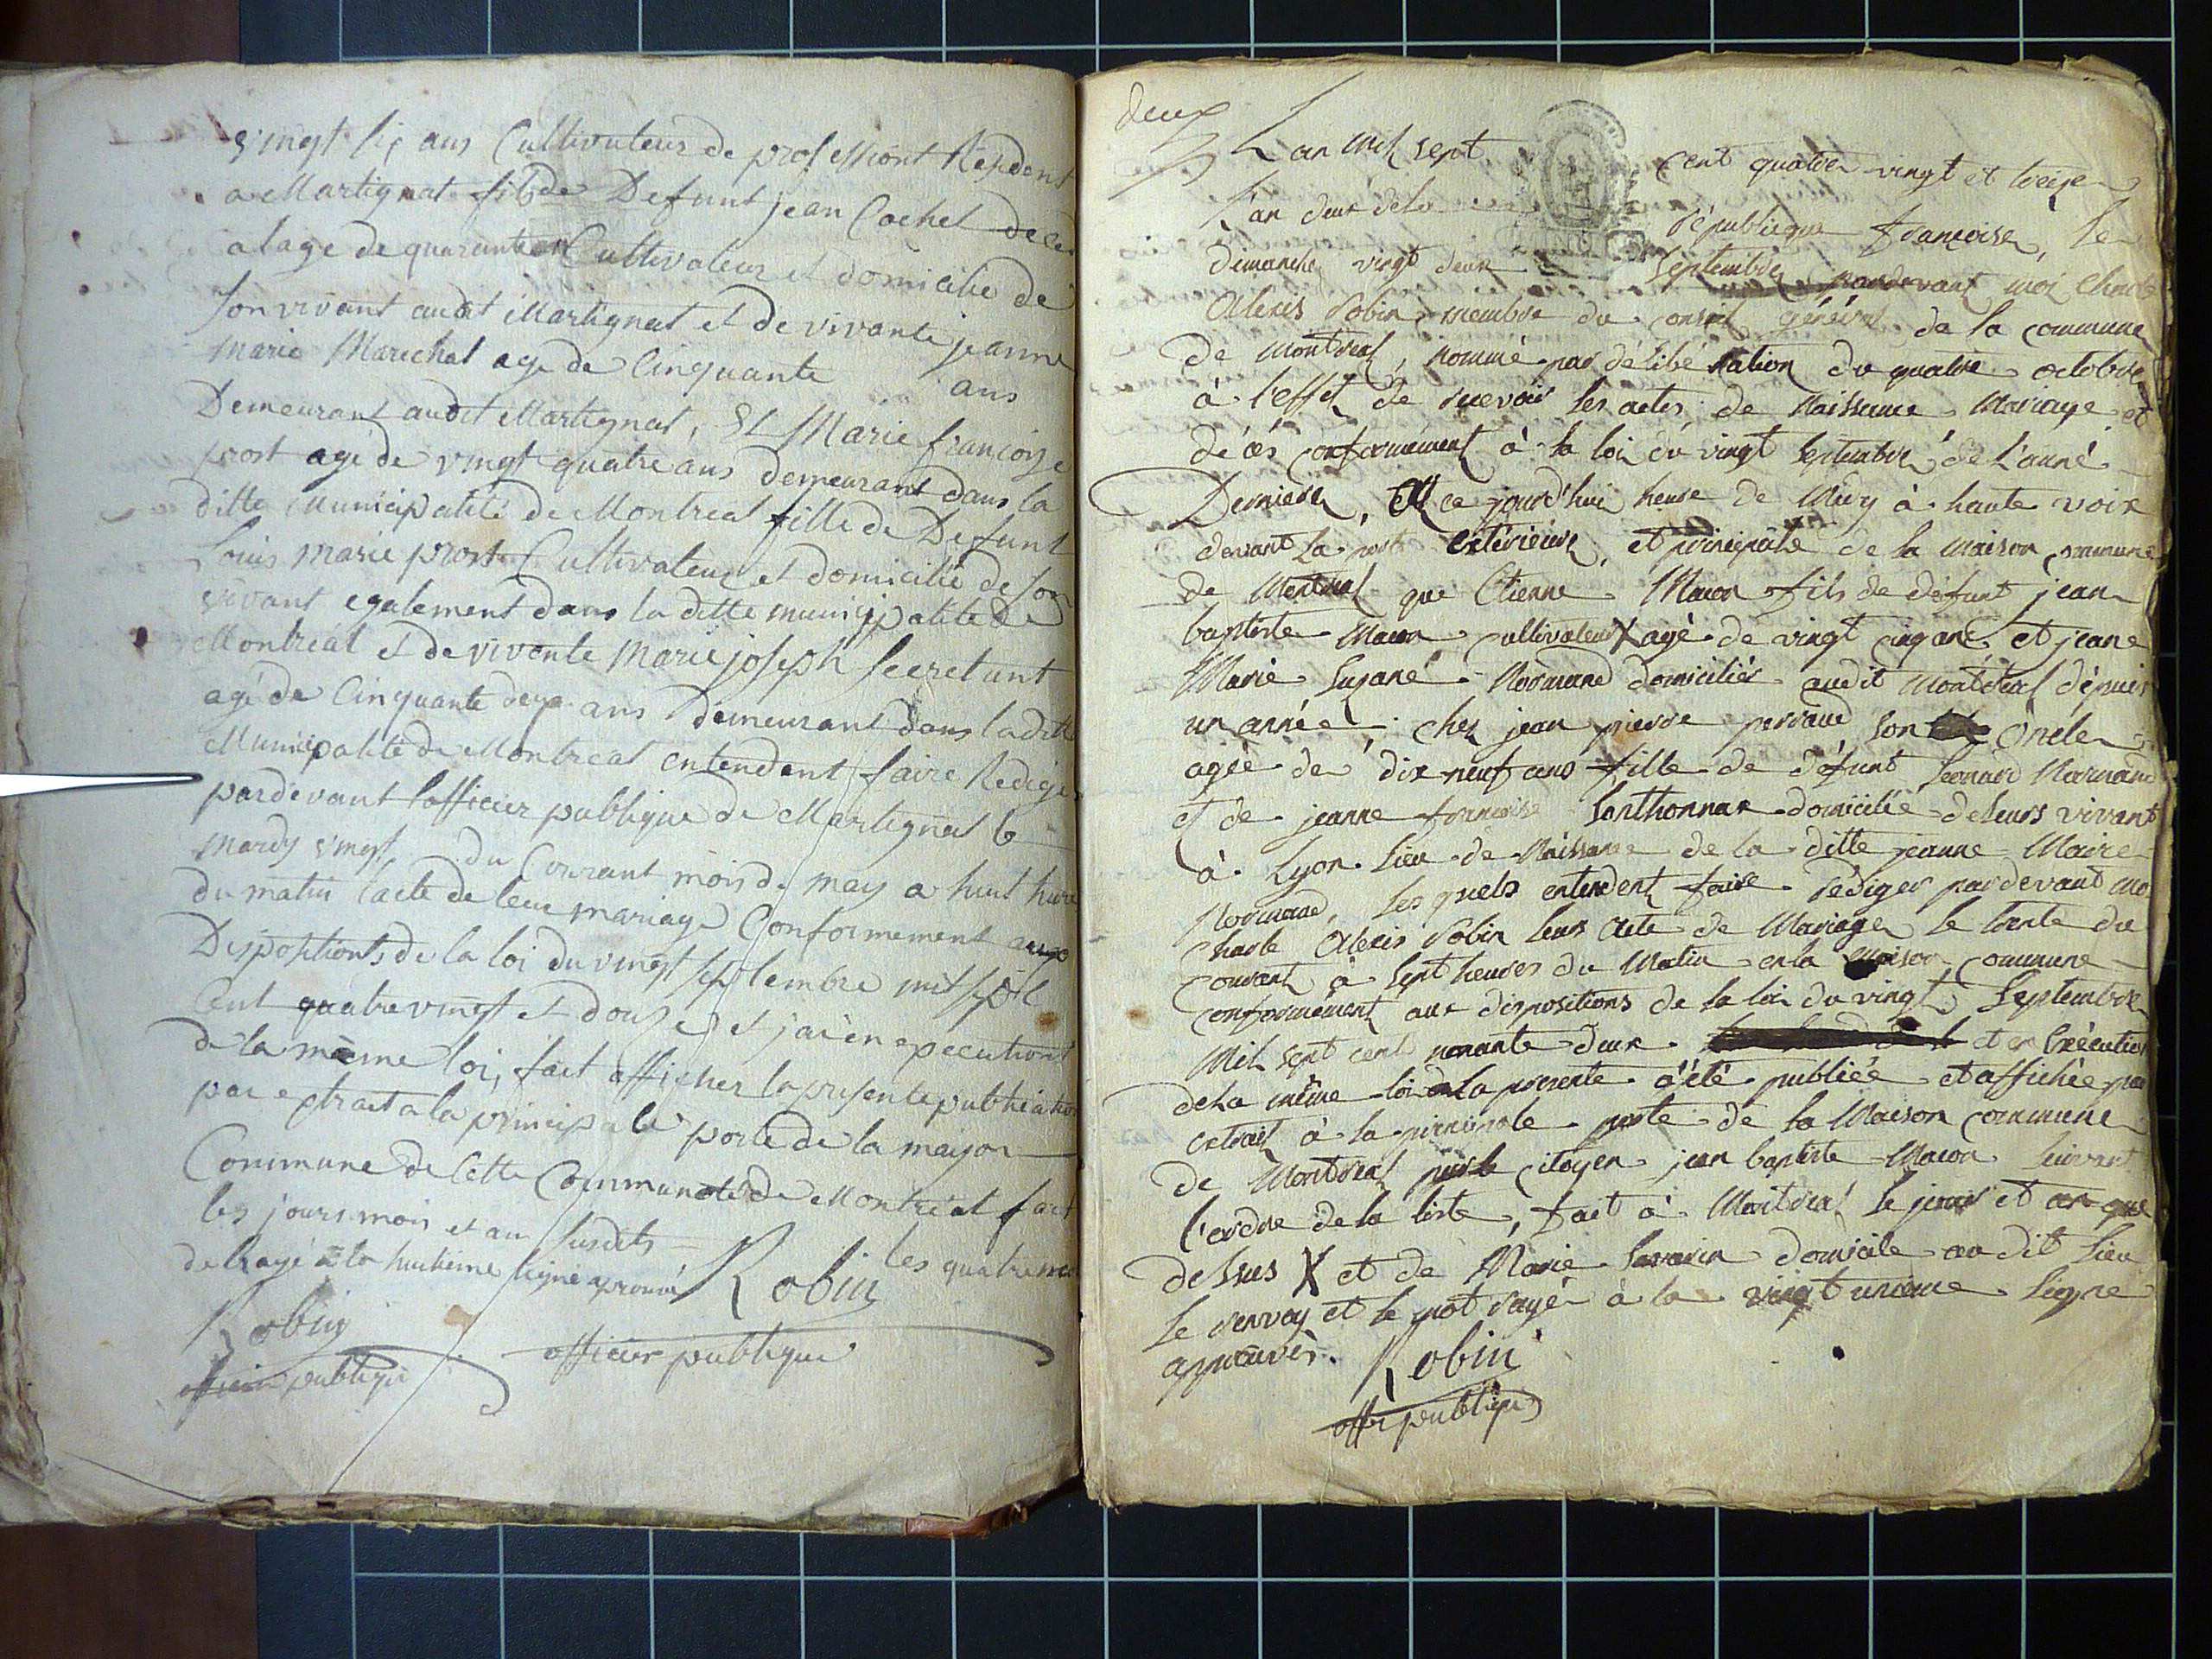 vingt six ans Cultivateur de professiont Residont
a Martignat fils de Defunt jean Cochet decede
a lage de quarante Cultivateur et domicilie de
son vivant audit Martignat et de vivante jeanne
marie Marechal agé de Cinquante ans
Demeurant audit Martignat, Et Marie francoise
prost agé de vingt quatre ans demeurant dans la
ditte municipalité de Montreal fille de Defunt
Louis marie prost Cultivateur et domicilié de son
vivant egalement dans la ditte municipalité de
Montréal et de vivente Marie joseph Secretant
agé de Cinquante deux ans demeurant dans la ditte
Municipalité de Montreal entendent faire Rediger
pardevant lofficier publique de Martignat le
mardy vingt du Courant mois de may a huit hure
du matin lacte de leur mariage Conformement aux
Dispositionts de la loi du vingt septembre mil sept
Cent quatre vingt et douze et jai en execution
de la même loi, fait afficher la presente publication
par extrait a la principale porte de la maison
Commune de Cette Communoté de Montréal fait
les jours mois et an susdits les quatre mot
de Rayé a la huitieme ligne aprouvé Robin
Robin officier publique
officier publique
deux
L'an mil sept cent quatre vingt et treize
l'an deux de la république francoise, le
demanche vingt deux septembre pardevant moi Charle
Alexis Robin membre du conseil général de la commune
de montreal, nommé par délibération du quatre octobre
à l'effet de recevoir les actes de Naissance Mariage et
décés conformement à la loi du vingt septembre de l'anné
Derniere, ce jourd'hui heure de Midy à haute voix
devant la porte extérieure, et principale de la maison commune
de Montreal que Etienne Macon fils de défunt jean
baptiste Macon cultivateur X agé de vingt cinq ans et jeane
Marie Susane Normand domiciliés audit Montréal dépuis
un année chez jean pierre perraud son Oncle
agée de dix neuf ans fille de défunt Leonard Normand
et de jeanne francoise Santhonnax domicilié de leurs vivant
à Lyon lieu de Naissance de la ditte jeanne Marie
Normand, les quels entendent faire rédiger pardevant moi
Charle Alexis Robin leurs Acte de Mariage le trente du
courant à sept heures du Matin en la maison commune
conformément aux dispositions de la loi du vingt Septembre
Mil sept cent nonante deux et en Exécution
de la même loi la presente à été publiée et affichée par
extrait à la principale porte de la Maison commune
de Montreal par le citoyen jean baptiste Macon suivant
l'ordre de la liste, fait à Montreal le jour et an que
dessus X et de Marie Savarin domicile au dit lieu
le renvoy et le mot rayé à la vingt unieme ligne
approuvés. Robin
offi publique